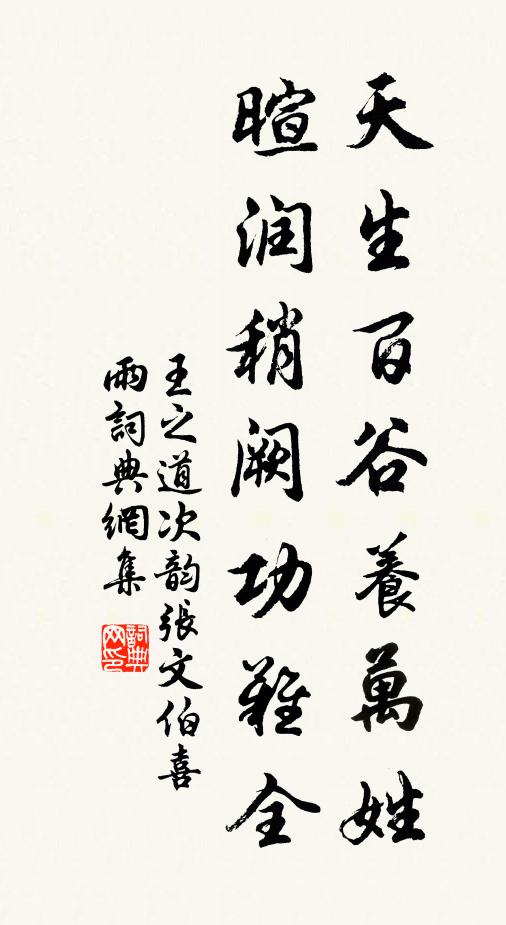 天生百谷養萬姓
暄润稍阙功難全
王之道次韵張文伯喜
雨詞典網集
詞典
网印